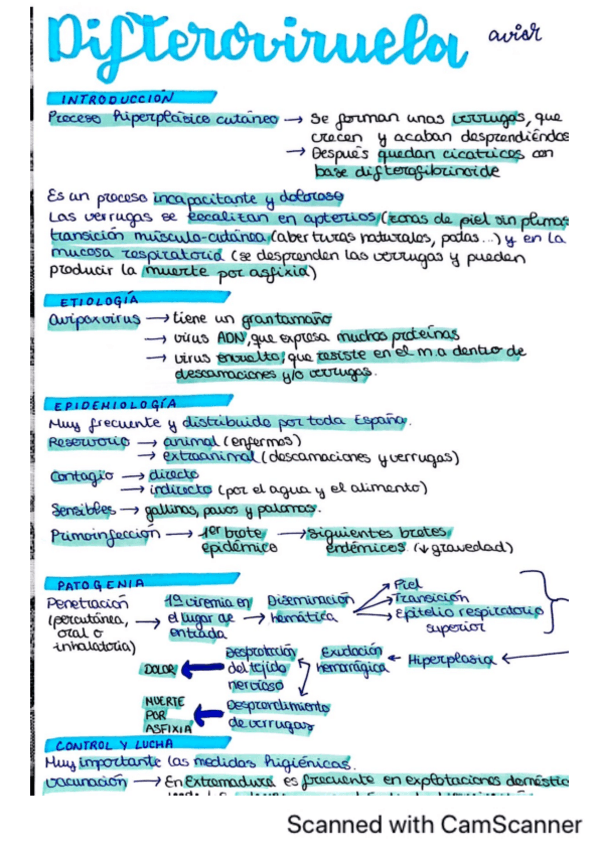 Difteroviruela aviar
INTRODUCCIÓN
Proceso hiperplásico cutáneo → Se forman unas verrugas, que
crecen y acaban desprendiéndos
→ Después quedan cicatrices con
base difterofibrinoide
Es un proceso incapacitante y doloroso
Las verrugas se localizan en apterios (zonas de piel sin plumas
transición músculo-cutánea (aberturas naturales, patas...) y en la
mucosa respiratoria (se desprenden las verrugas y pueden
producir la muerte por asfixia)
ETIOLOGÍA
Avipoxvirus → tiene un gran tamaño
→ virus ADN, que expresa muchas proteínas
→ virus envuelto, que resiste en el m.a dentro de
descamaciones y/o verrugas.
EPIDEMIOLOGÍA
Muy frecuente y distribuida por toda España.
Reservorio → animal (enfermos)
→ extraanimal (descamaciones y verrugas)
Contagio → directo
→ indirecto (por el agua y el alimento)
Sensibles → gallinas, pavos y palomas.
Primoinfección → 1er brote → siguientes brotes
epidémico endémicos (↓ gravedad)
PATOGENIA
Penetración (percutánea, oral o inhalatoria) → 1ª viremia en el lugar de entrada → Diseminación hemática → Piel
→ Transición
→ Epitelio respiratorio superior
← Hiperplasia ←
Exudación hemorrágica
Desprotección del tejido nervioso
DOLOR
Desprendimiento de verrugas
MUERTE POR ASFIXIA
CONTROL Y LUCHA
Muy importante las medidas higiénicas.
Vacunación → En Extremadura es frecuente en explotaciones doméstic
Scanned with CamScanner